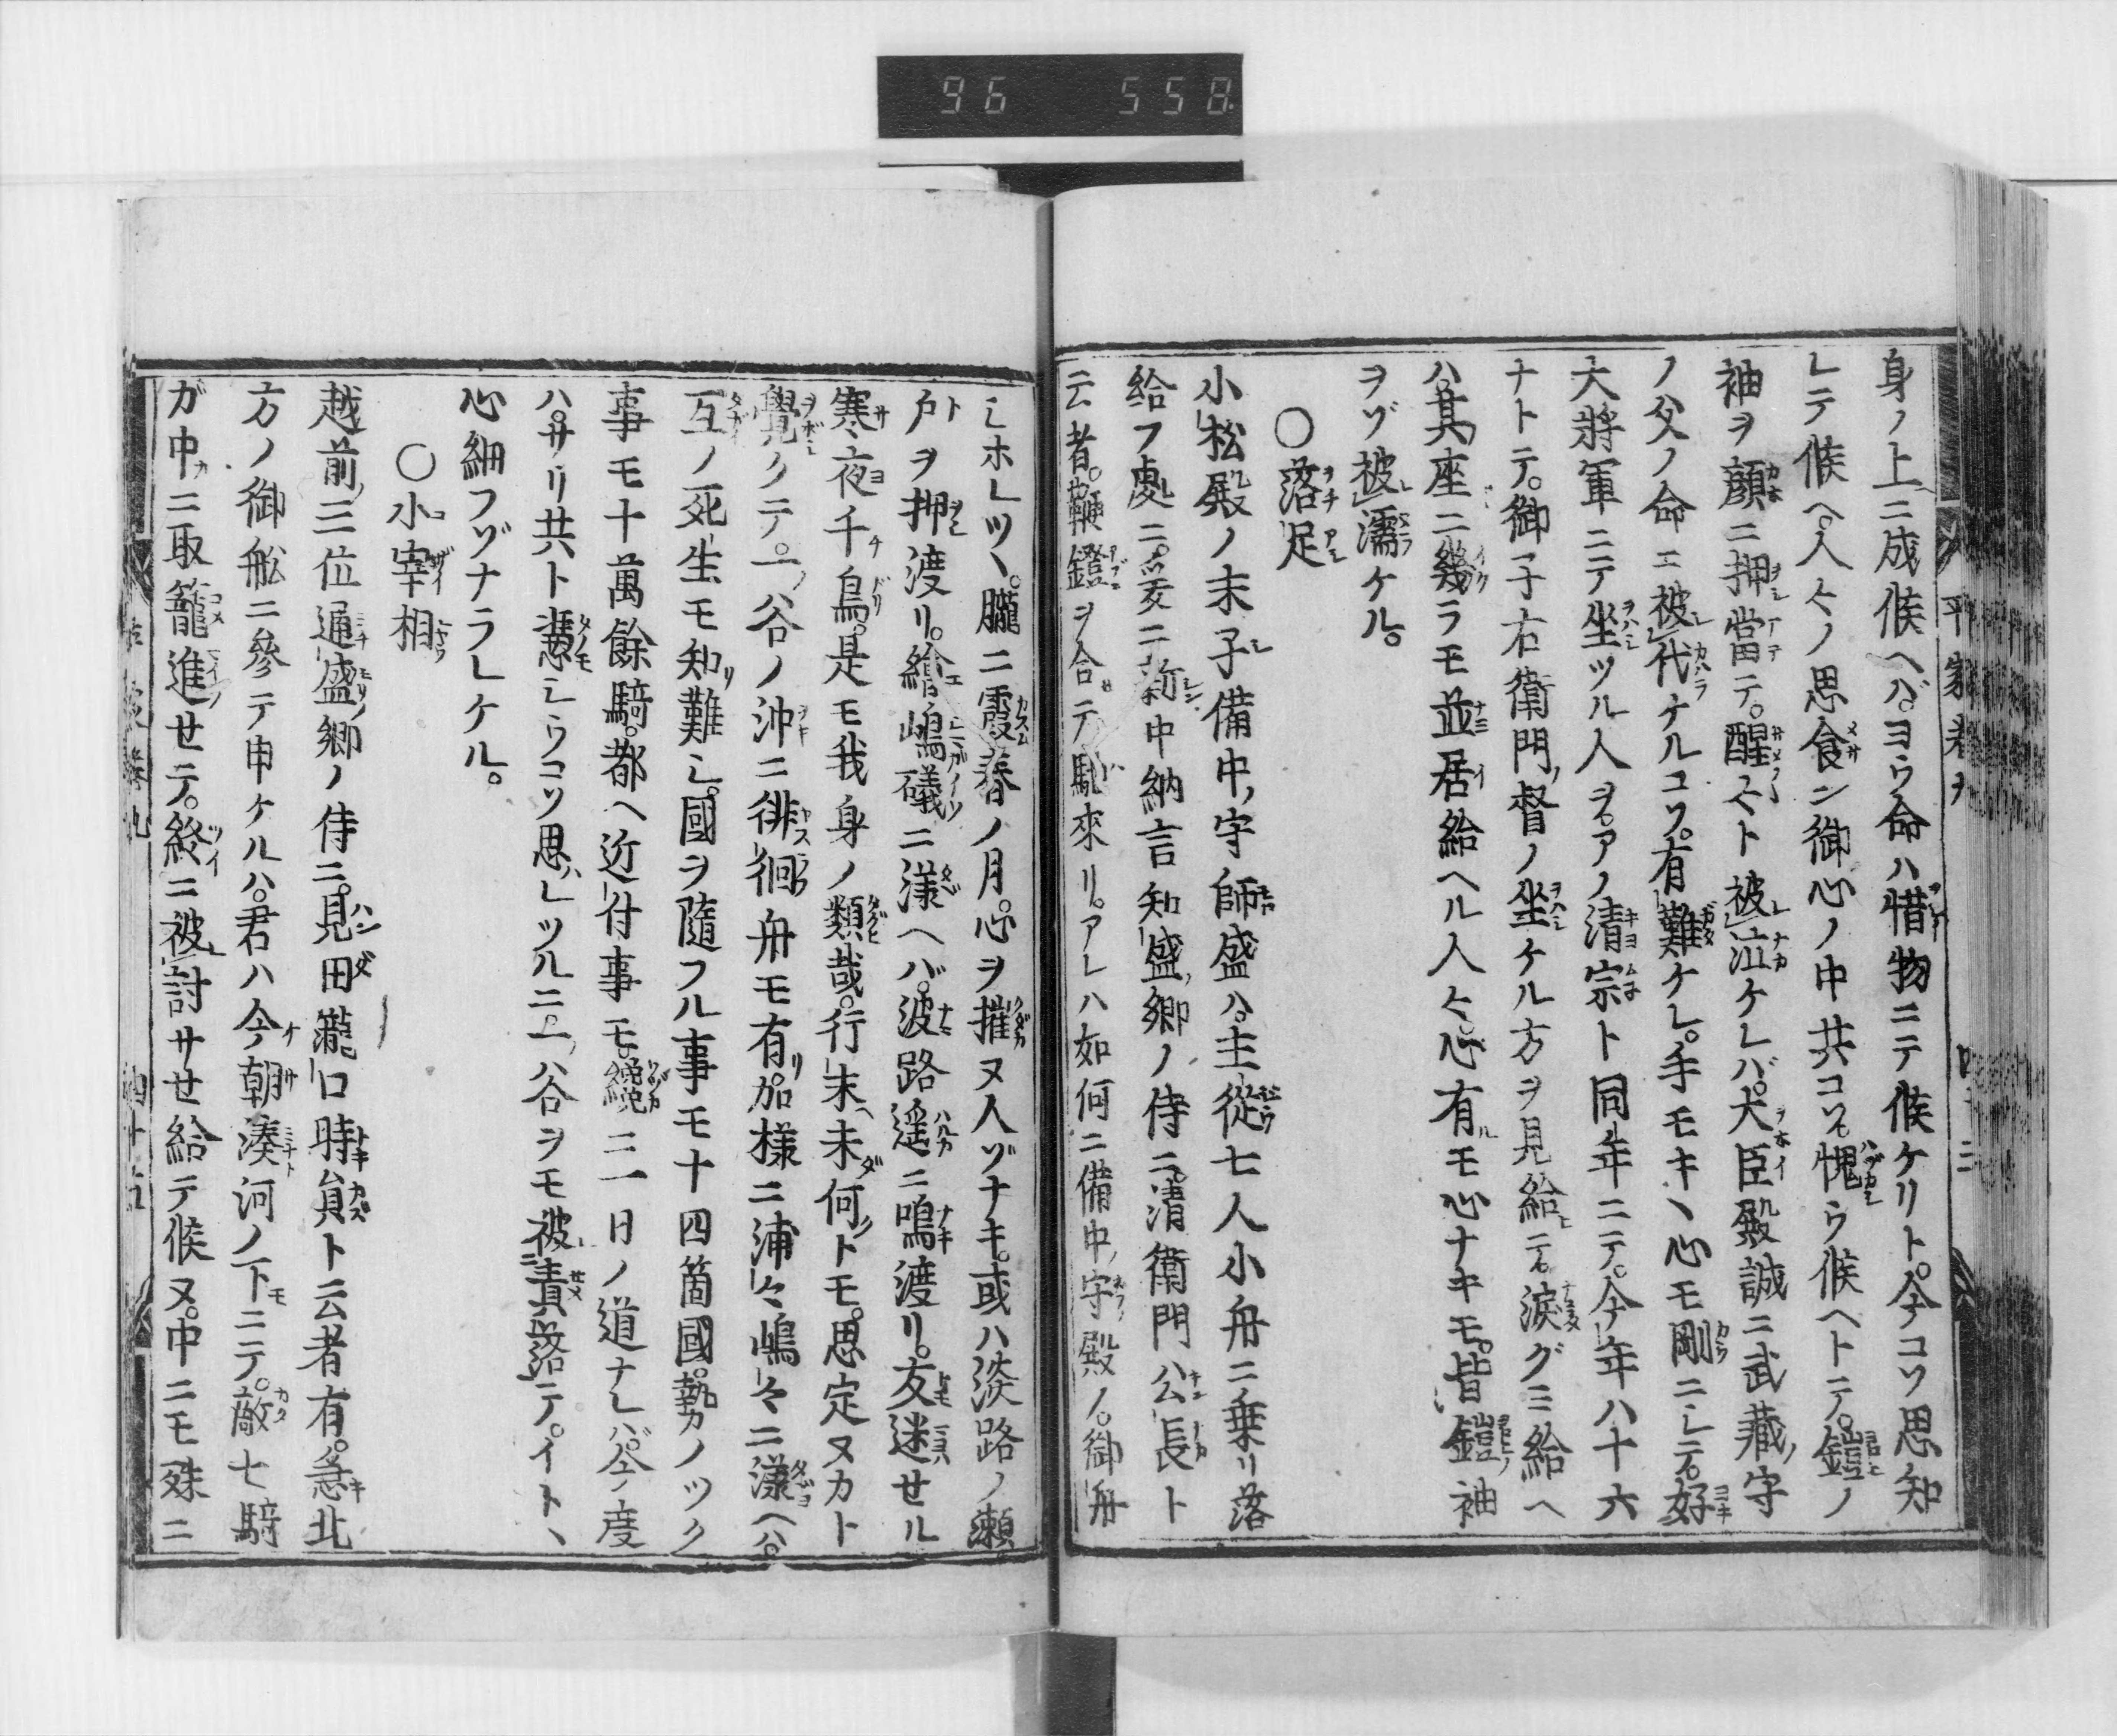 96 558
平家巻九
身ノ上ニ成候ヘバ。ヨウ命ハ惜物ニテ候ケリト。今コソ思知
レテ候ヘ。人々ノ思食ン御心ノ中共コソ。愧ウ候ヘトテ。鎧ノ
袖ヲ顔ニ押當テ。醒々ト被泣ケレバ。大臣殿誠ニ武藏守
ノ父ノ命ニ被代ケルコソ。有難ケレ。手モキヽ心モ剛ニシテ。好
大將軍ニテ坐ツル人ヲ。アノ清宗ト同年ニテ。今年ハ十六
ナトテ。御子右衛門督ノ坐ケル方ヲ見給テ。涙グミ給ヘ
ハ。其座ニ幾ラモ並居給ヘル人々。心有モ心ナキモ。皆鎧袖
ヲゾ被濡ケル。
○落足
小松殿ノ末子備中守師盛ハ。主從七人小舟ニ乗リ落
給フ處ニ。爰ニ新中納言知盛卿ノ侍ニ。清衛門公長ト
云者。鞭鐙ヲ合テ馳來リ。アレハ如何ニ備中守殿ノ。御舟
シホレツヽ。朧ニ霞春ノ月。心ヲ摧ヌ人ゾナキ。或ハ淡路ノ瀬
戸ヲ押渡リ。繪嶋礒ニ漾ヘバ。波路遥ニ鳴渡リ。友迷セル
寒夜千鳥。是モ我身ノ類哉。行末未何トモ。思定ヌカト
覺クテ。一谷ノ沖ニ徘徊舟モ有。加樣ニ浦々嶋々ニ漾ヘハ。
互ノ死生モ知難シ。國ヲ隨フル事モ十四箇國。勢ノツク
事モ十萬餘騎。都ヘ近付事モ。纔ニ一日ノ道ナレバ。今度
ハ。サリ共ト憑シウコソ思レツルニ。一ハ谷ヲモ被責落テ。イトヽ
心細フゾナラレケル。
○小宰相
越前三位通盛卿ノ侍ニ。見田瀧口時員ト云者有。急北
方ノ御舩ニ參テ申ケルハ。君ハ今朝湊河ノ下ニテ。敵七騎
ガ中ニ取籠進せテ。終ニ被討サせ給テ候ヌ。中ニモ殊ニ